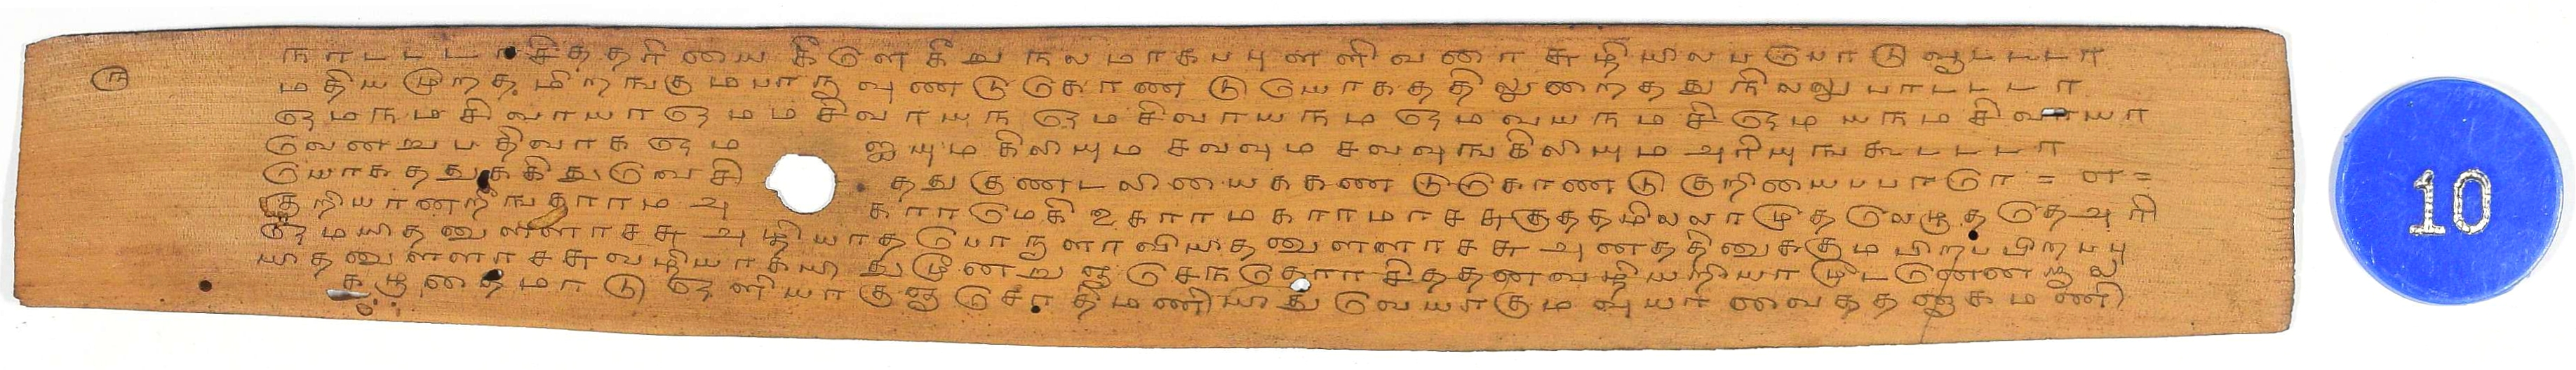 ரு
நாடடடாசிததரியை கீளெகீழ நலமாகபபுளளிவணா சுழியிலபபொடு வூடடடா
மதியமுறத மிறஙகுமபாரு வுணடுகொண டு யோகததிலுறைநதது நிலலு பாடடடா
ஓமநமசிவாயா ஓமம சிவாயந ஓமசிவாயநம ஓமவயநமசி ஓமயநமசிவாயா
வெனறு பதிவாக ஓம ஐயும கிலியும சவவும சவவுஙகிலியும அரியுஙகூடடடா
யோகததுககிதுவெசி ததுகுணடலியைககண டுகொணடு குறியைபபாரொ = ௱ =
குறியானறீஙகாரம அ காரமெகி உகாரமகாரமாசசுகுததமிலலாமுதலெழுததெ அரி
ஓமயிதவுளளாசசு அதியாதபொருளாவியிதவுளளாசசு அணைததினுககுமபிறபபிறபபு
யிதவுளளாசசுவழியாகியிதுமூனறுஞசெநதொரசிததனவழியறியாமூடனெணணரூல
கழுதைமாடு ஓளியாகுஞசொதிமணியிதுவெயாகும வுயர வைததஞகமணி
10